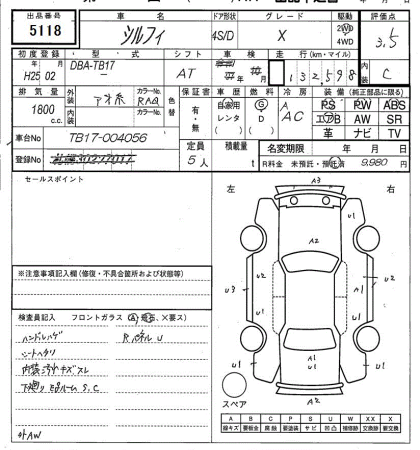 出品番号 車名 ドア形状 グレード 駆動 評価点
5118 シルフィ 4S/D X 2WD 4WD 3.5
初度登録 型式 シフト 車検 走行(km・マイル) 内装
H25 02 年 月 DBA-TB17 - AT 年 月 132,598 C
排気量 外装 カラーNo. 色替 保証書 車歴 燃料 冷房 装備(純正部品に限る)
1800 c.c. アオ系 RAQ 有・無 自家用 レンタ ( ) G D ( ) A AC PS PW ABS
内装 カラーNo. エアB AW SR
革 ナビ TV
車台No TB17-004056 定員 積載量 名変期限 年 月 日
登録No 5人 t R料金 未預託・預託済 9,980円
セールスポイント
左 右
※注意事項記入欄(修復・不具合箇所および状態等)
検査員記入 フロントガラス(A,飛石、×要ス)
ハンドルハゲ RパネルU
シートヘタリ
内装ヨゴレキズスレ
S.C
外AW
A3
U1
A2
U2 U2
U3 U1
A1
U1 A1 U1
U1
A2
スペア
A B C P S U W X XX
線キズ 要板金 腐蝕 要塗装 サビ 凹凸 補修跡 要交換 交換跡